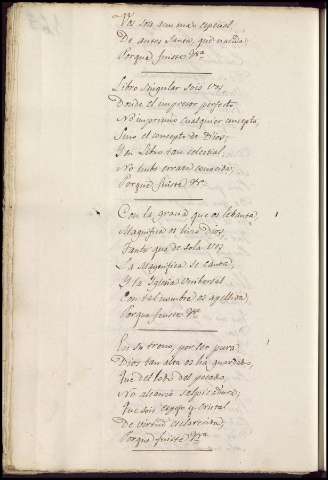 Vos sois, 
De antes Santa, que nacida;
Porque fuiste &ra
Libro singular sois vos
Donde el impresor perfecto
No imprimio cualquier concepto,
Sino el concepto de Dios;
Y en libro tan celestial
No hubo errata conocida;
Porque fuiste &c
Con la gracia que os lebanta,
Magnifica os hizo Dios,
Tanto que de sola vos
La Magnifica se canta,
Y la Yglesia Unibersal
Con tal nombre os apellida,
Porque fuiste &c
En su trono, por ser pura
Dios tan alta os ha guardado
Que del lodo del pecado,
No alcanzó salpicadura;
Que sois espejo y cristal
De virtud esclarecida,
Porque fuiste &ra